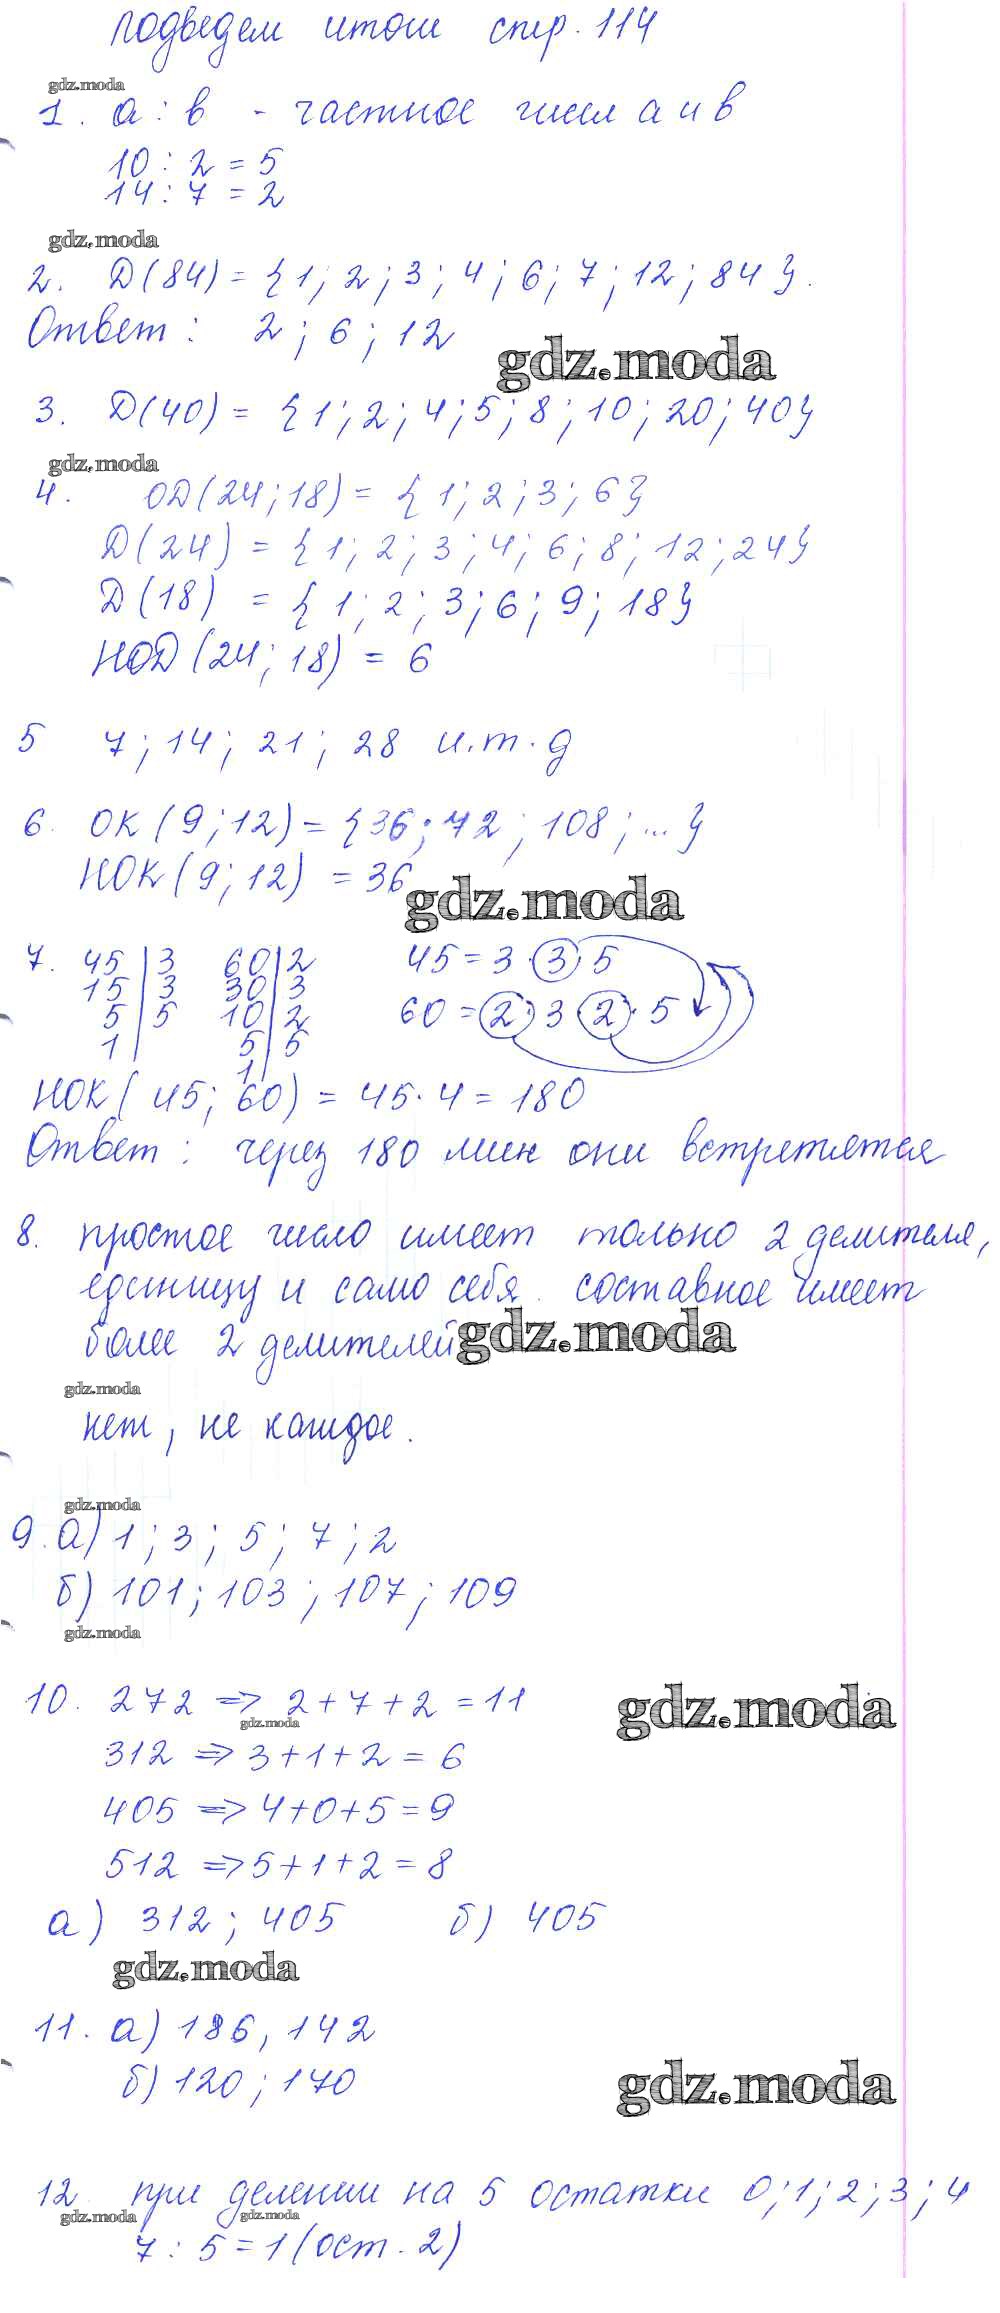 подведем итоги стр. 114
gdz.moda
1. a : b - частное чисел a и b
10 : 2 = 5
14 : 7 = 2
gdz.moda
2. D(84) = {1; 2; 3; 4; 6; 7; 12; 84}.
Ответ: 2; 6; 12
gdz.moda
3. D(40) = {1; 2; 4; 5; 8; 10; 20; 40}
gdz.moda
4. ОD(24; 18) = {1; 2; 3; 6}
D(24) = {1; 2; 3; 4; 6; 8; 12; 24}
D(18) = {1; 2; 3; 6; 9; 18}
НОD(24; 18) = 6
5 7; 14; 21; 28 и.т.д
6. ОК(9; 12) = {36; 72; 108; ...}
НОК(9; 12) = 36
gdz.moda
7. 45 | 3 60 | 2 45 = 3 · 3 · 5
15 | 3 30 | 3
5 | 5 10 | 2 60 = 2 · 3 · 2 · 5
1 | 5 | 5
1 |
НОК( 45; 60) = 45 · 4 = 180
Ответ: через 180 мин они встретятся
8. простое число имеет только 2 делителя,
единицу и само себя. составное имеет
более 2 делителей
gdz.moda
gdz.moda
нет, не каждое.
gdz.moda
9. а) 1; 3; 5; 7; 2
б) 101; 103; 107; 109
gdz.moda
10. 272 => 2 + 7 + 2 = 11
gdz.moda
gdz.moda
312 => 3 + 1 + 2 = 6
405 => 4 + 0 + 5 = 9
512 => 5 + 1 + 2 = 8
а) 312; 405 б) 405
gdz.moda
11. а) 186, 142
б) 120; 170
gdz.moda
12. при делении на 5 остатки 0; 1; 2; 3; 4
gdz.moda
gdz.moda
7 : 5 = 1 (ост. 2)